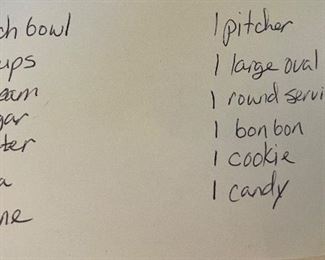 ch bowl
ups
eam
gar
ter
a
ne
1 pitcher
1 large oval
1 round servi
1 bon bon
1 cookie
1 candy